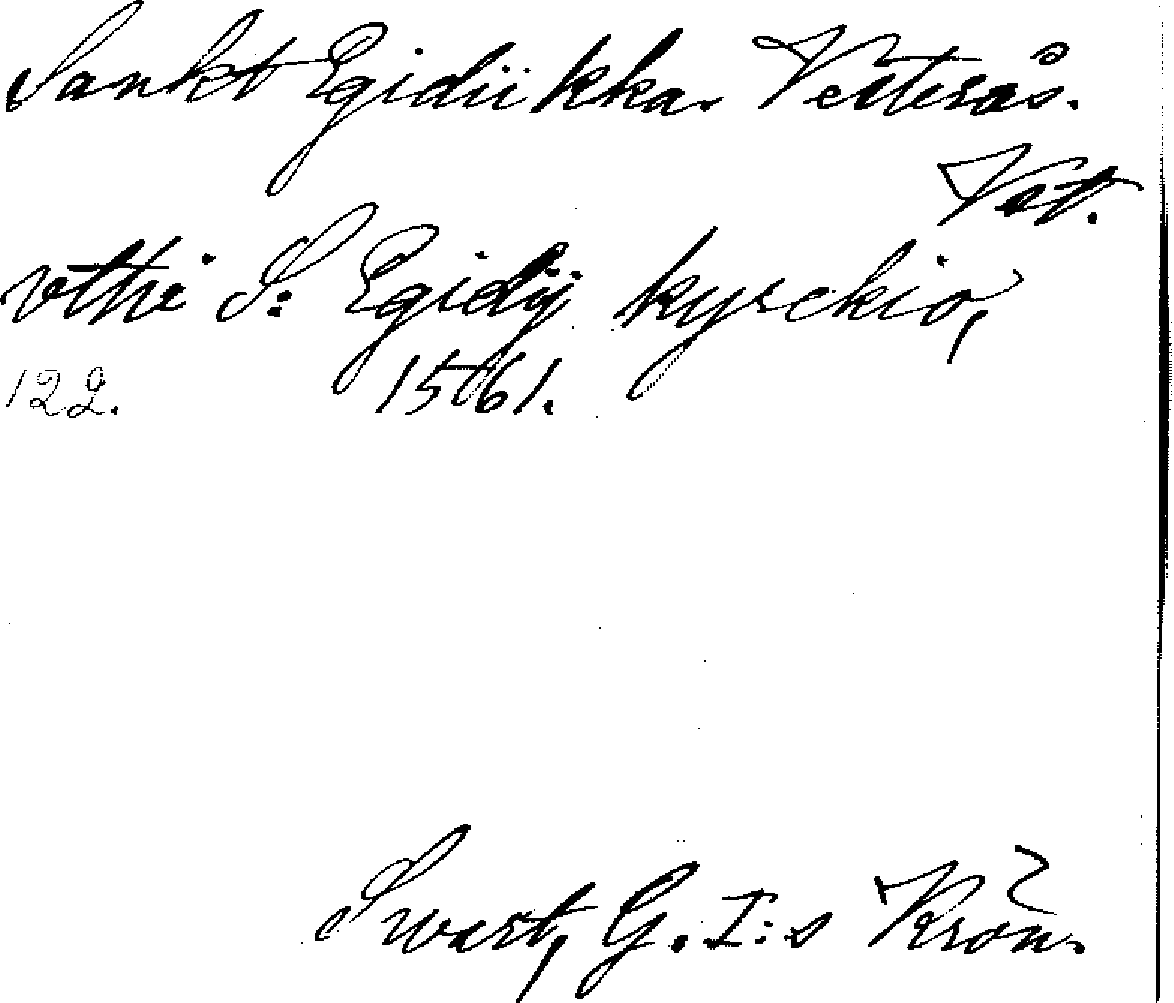 Sankt Egidii kka. Vesterås.
Vst.
vthi S: Egidÿ kyrckio,
122. 1561.
Swart, G. I:s Krön.